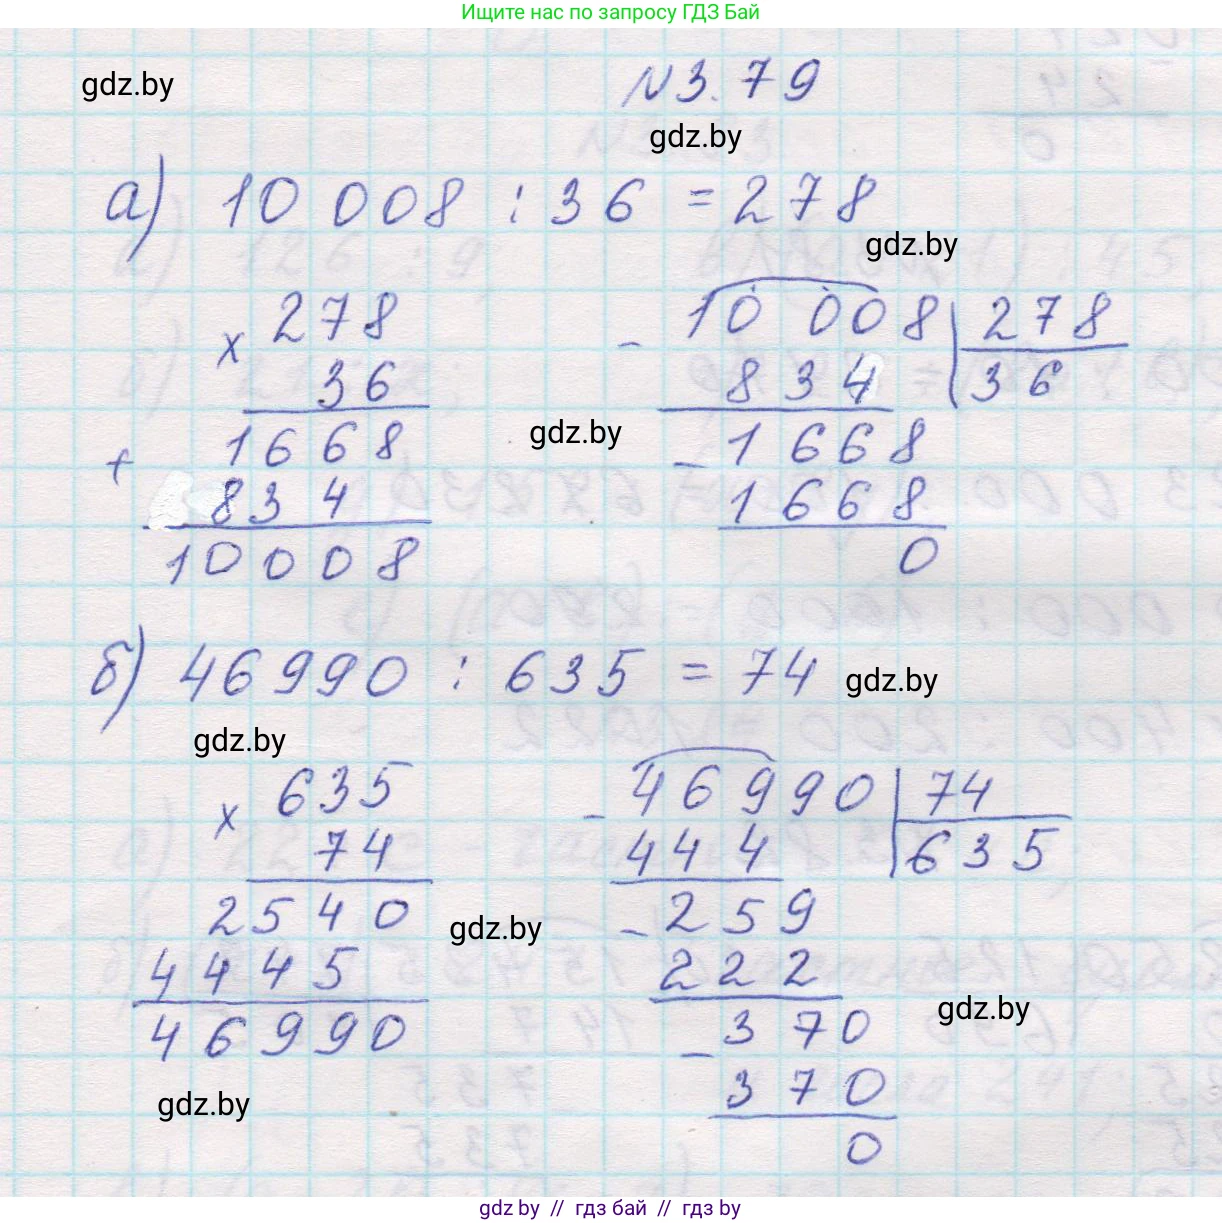 Ищите нас по запросу ГДЗ Бай
gdz.by
N 3.79
gdz.by
а) 10 008 : 36 = 278
gdz.by
× 278
36
1668
+ 834
10008
- 10 008 278
834 36
- 1668
1668
0
gdz.by
б) 46990 : 635 = 74
gdz.by
gdz.by
× 635
74
2540
4445
46990
- 46990 74
444 635
- 259
222
- 370
370
0
gdz.by
gdz.by
gdz.by
gdz.by // гдз бай // гдз by